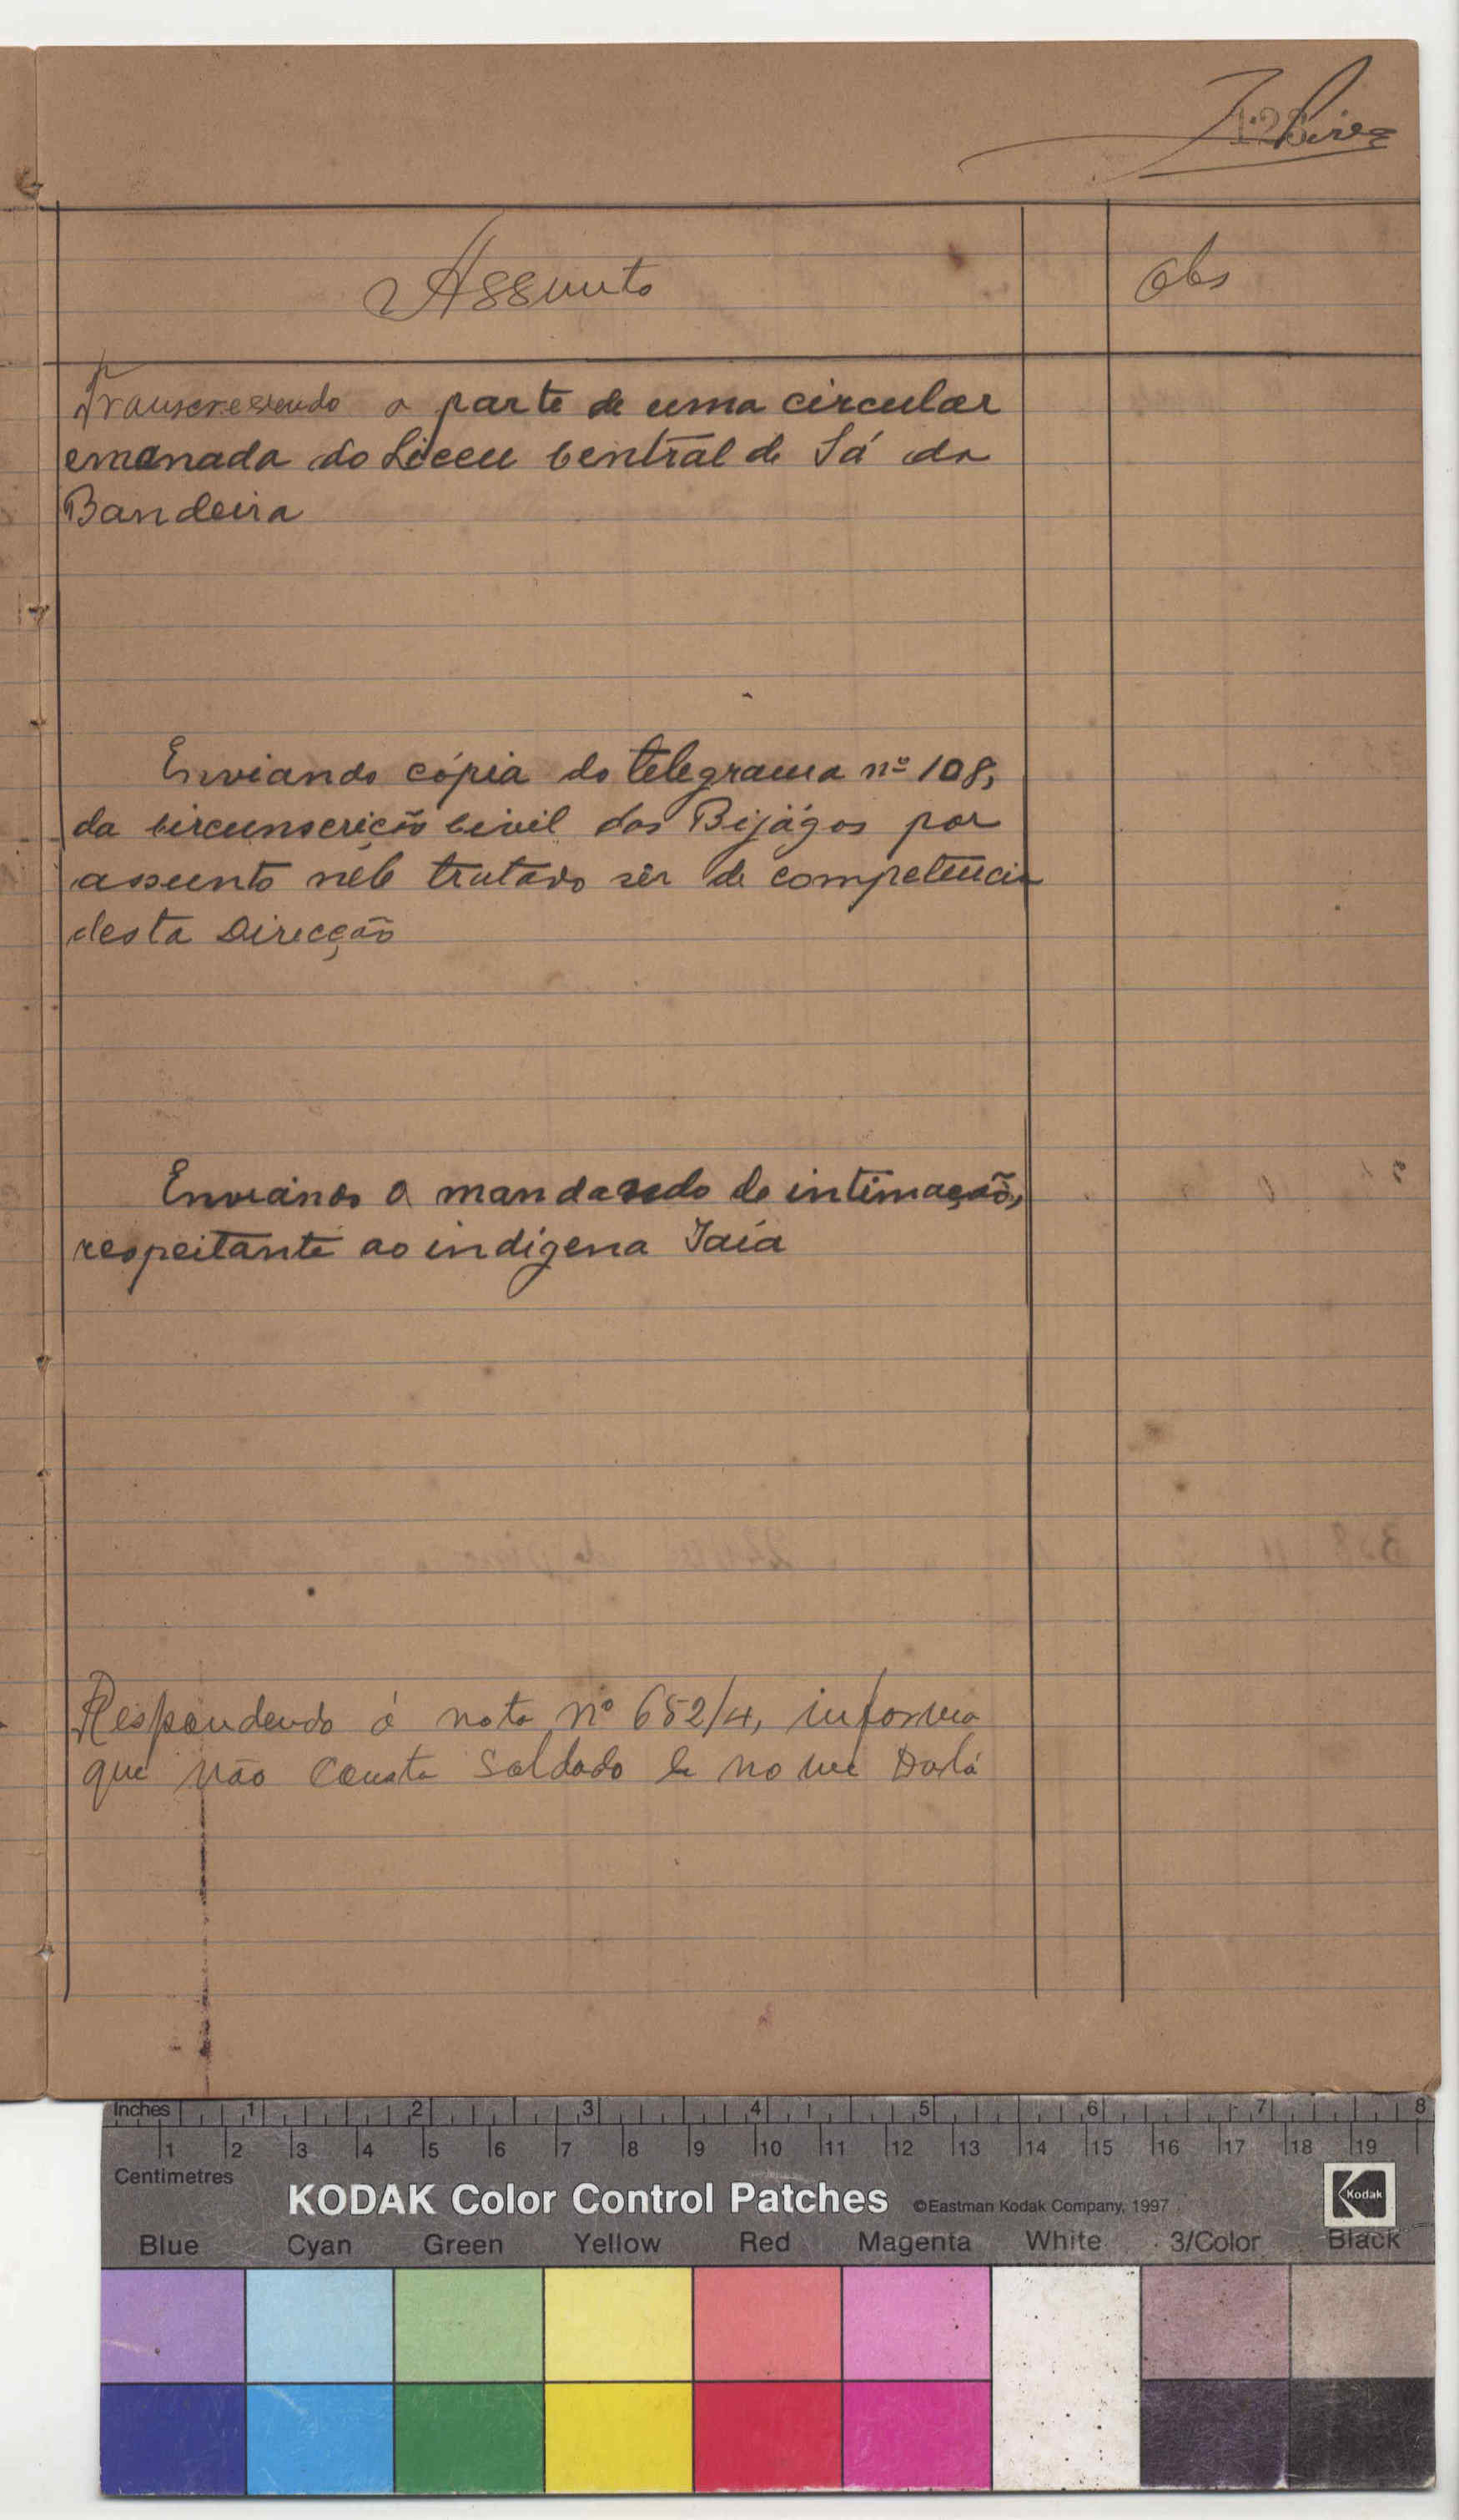 Assunto
Obs
Transcrevendo a parte de uma circular
emanada do Liceu Central de Sá da
Bandeira
Enviando cópia do telegrama nº 108,
da Circunscrição Civil dos Bijágos por
assunto nêle tratado sêr de competencia
desta Direcção
Enviando o mandado de intimação,
respeitante ao indígena Iaía
Respondendo á nota nº 652/4, informa
que não consta soldado de nome
Inches 1 2 3 4 5 6 7 8
1 2 3 4 5 6 7 8 9 10 11 12 13 14 15 16 17 18 19
Centimetres
KODAK Color Control Patches ©Eastman Kodak Company, 1997 Kodak
Blue Cyan Green Yellow Red Magenta White 3/Color Black